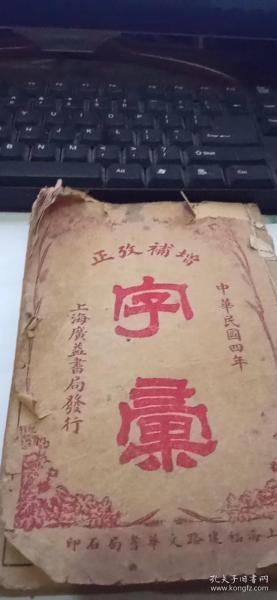 增補攷正
中華民國四年
字彙
上海廣益書局發行
上海福建路文華書局石印
孔夫子旧书网